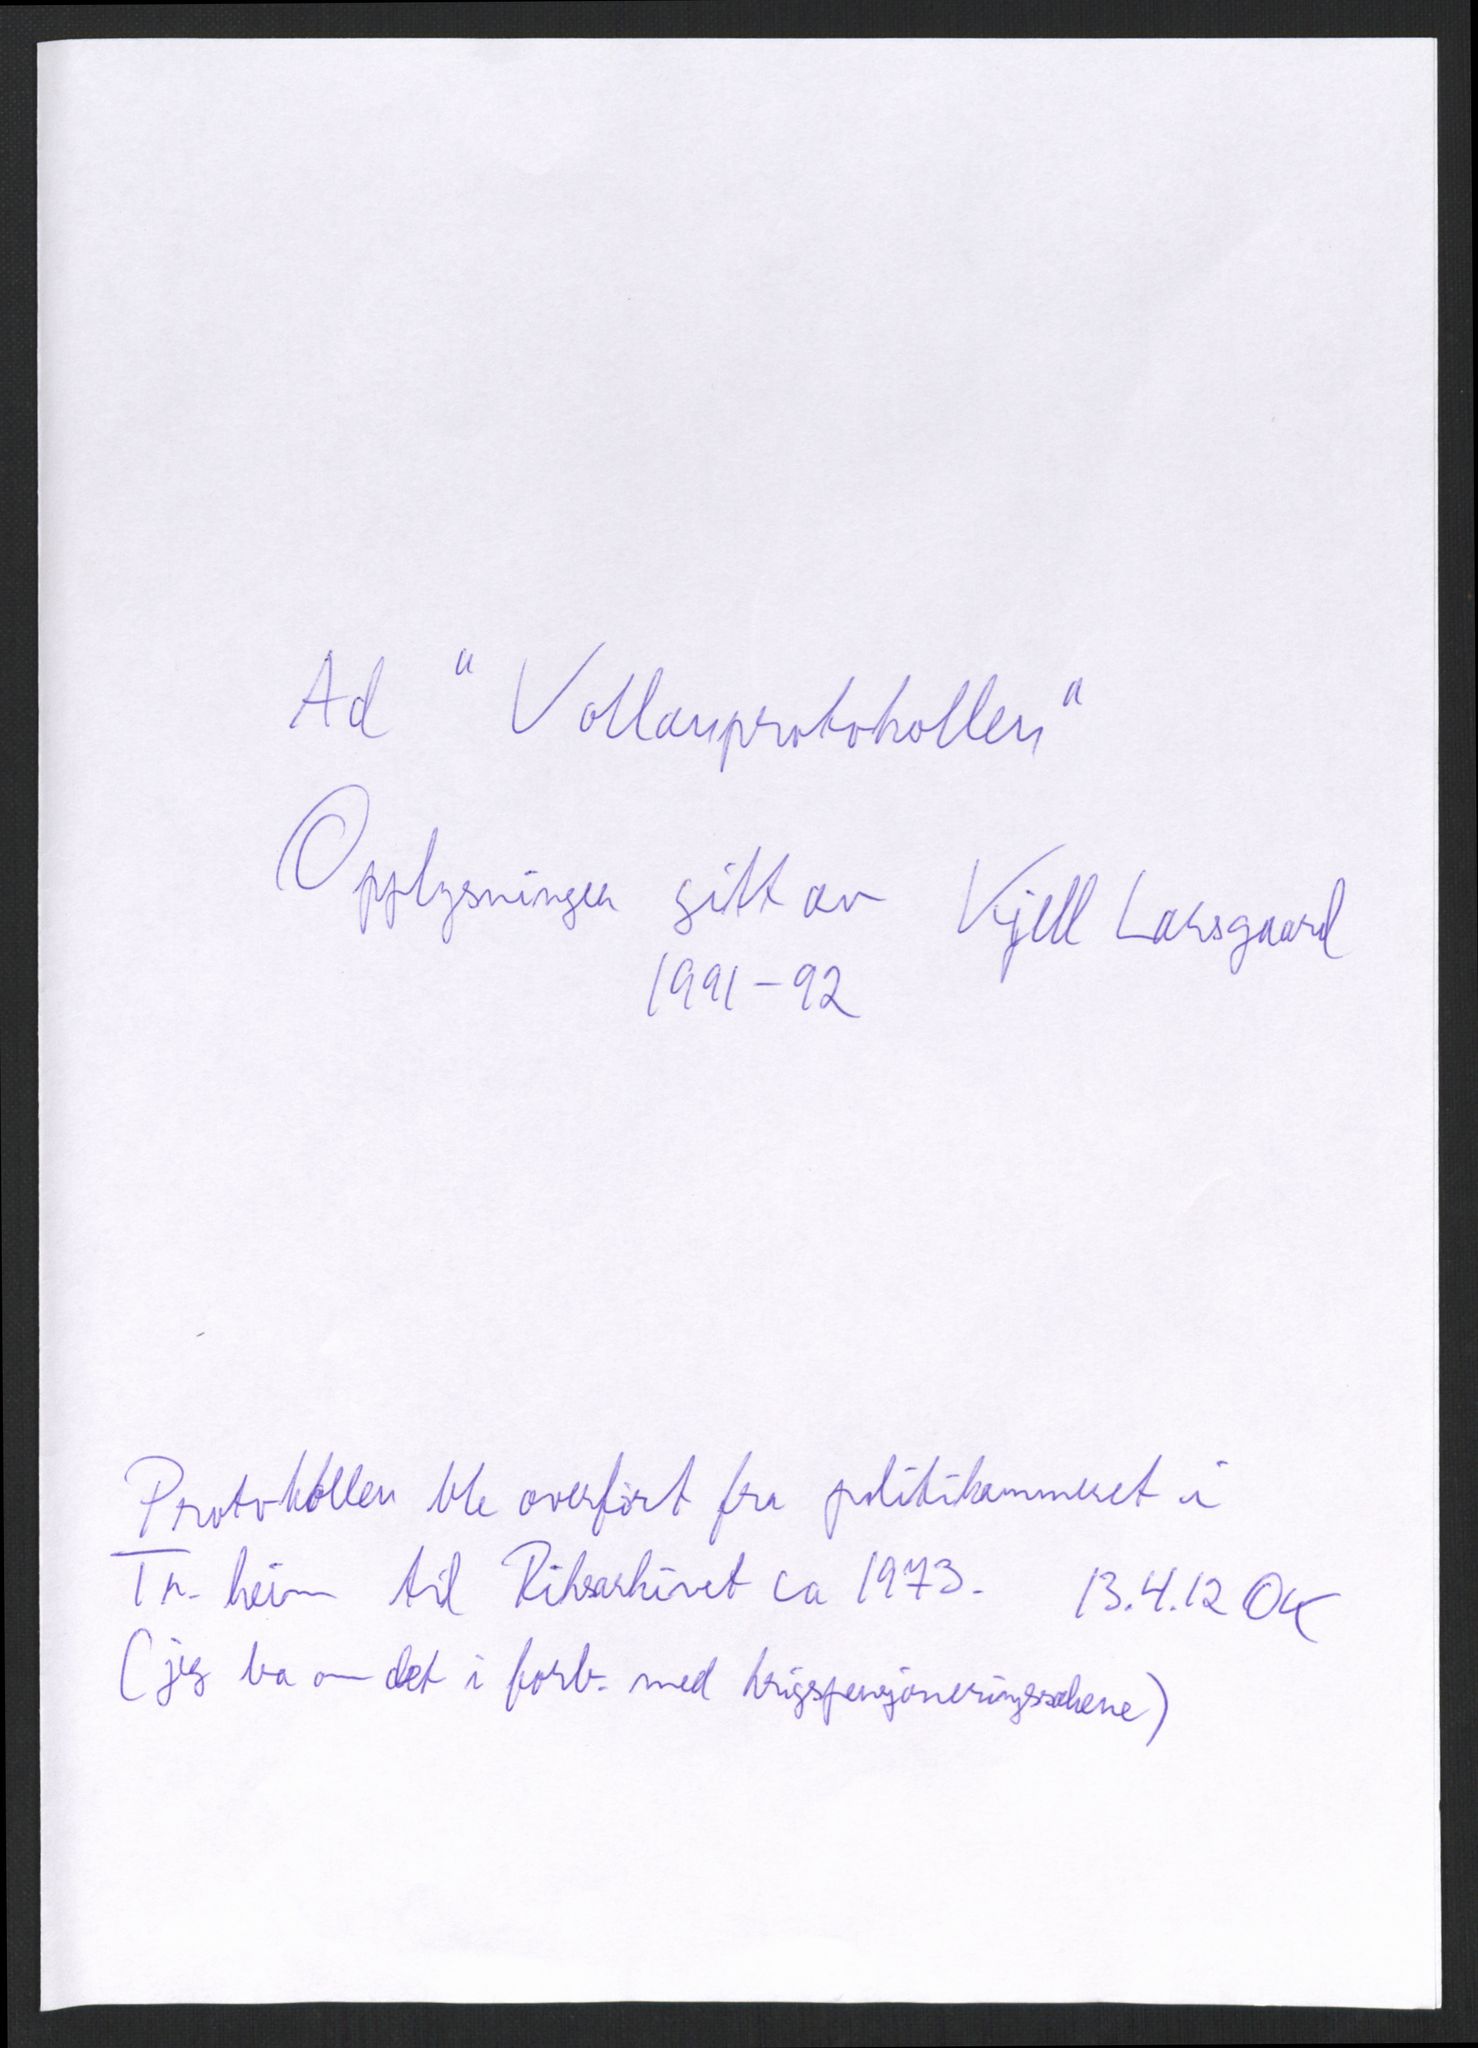 Ad "Vollanprotokollen"
Opplysninger gitt av Kjell Larsgaard
1991-92
Protokollen ble overført fra politikammeret i
Tr.heim til Riksarkivet ca 1973. 13.4.12 OK
(jeg ba om det i forb. med krigspensjoneringssakene)